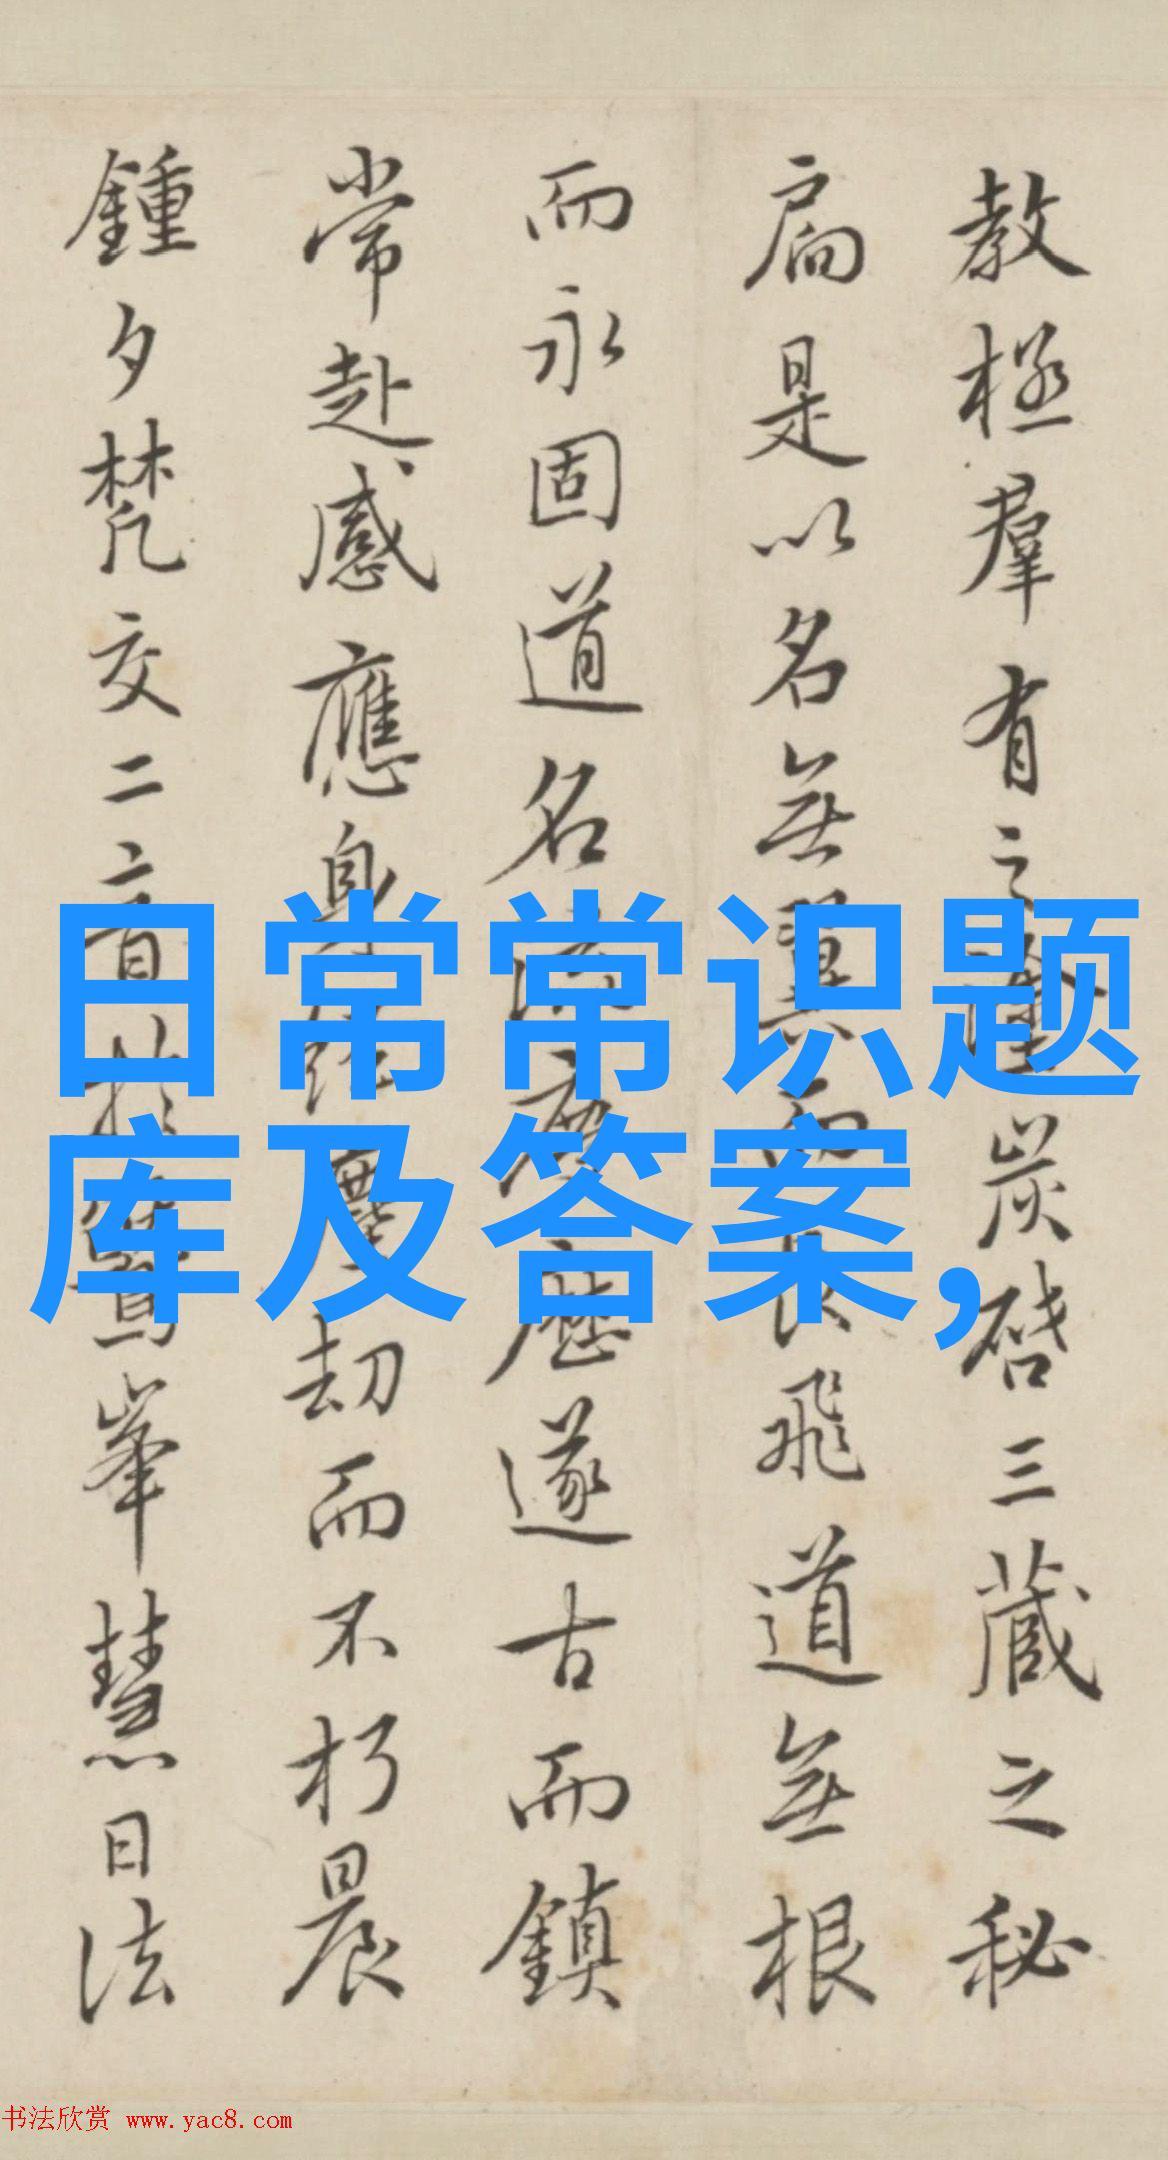 日常常识题
库及答案,
教極羣有之塗炭啓三藏之秘
扃是以名無翼而長飛道無根
而永固道名流慶歷遂古而鎮
常赴感應身經塵劫而不朽晨
鍾夕梵交二音於鷲峯慧日法
书法欣赏 www.yac8.com